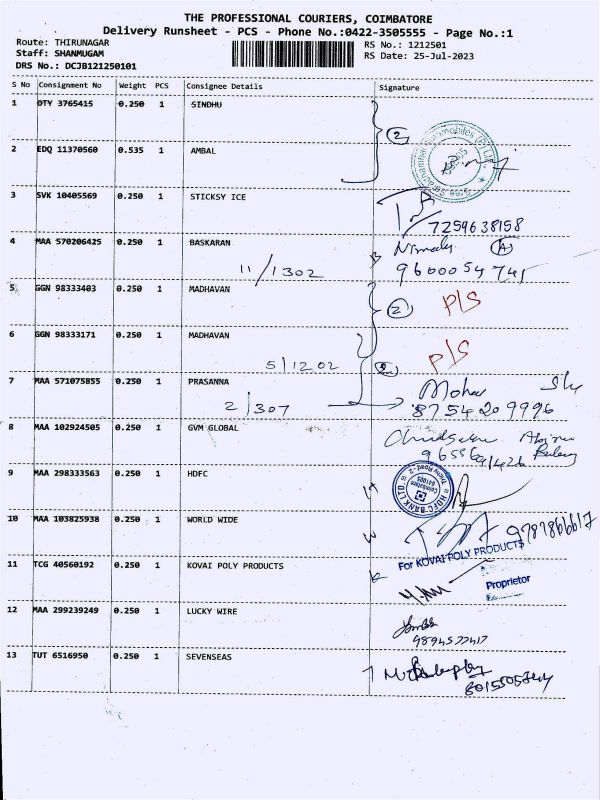 THE PROFESSIONAL COURIERS, COIMBATORE
Delivery Runsheet - PCS - Phone No.:0422-3505555 - Page No.:1
Route: THIRUNAGAR RS No.: 1212501
Staff: SHANMUGAM RS Date: 25-Jul-2023
DRS No.: DCJB121250101
S No Consignment No Weight PCS Consignee Details Signature
1 OTY 3765415 0.250 1 SINDHU
2
2 EDQ 11370560 0.535 1 AMBAL
3 SVK 10405569 0.250 1 STICKSY ICE
7259638158
4 MAA 570206425 0.250 1 BASKARAN
11/1302 9600054741
5 GGN 98333403 0.250 1 MADHAVAN
2 P/S
6 GGN 98333171 0.250 1 MADHAVAN
5/1202 P/S
7 MAA 571075855 0.250 1 PRASANNA
2/307 8754209996
8 MAA 102924505 0.250 1 GVM GLOBAL
9 MAA 298333563 0.250 1 HDFC
HDFC BANK LTD.
Trichy Road-2
Coimbatore
10 MAA 103825938 0.250 1 WORLD WIDE
For KOVAI POLY PRODUCTS
11 TCG 40560192 0.250 1 KOVAI POLY PRODUCTS
Proprietor
12 MAA 299239249 0.250 1 LUCKY WIRE
9894577417
13 TUT 6516950 0.250 1 SEVENSEAS